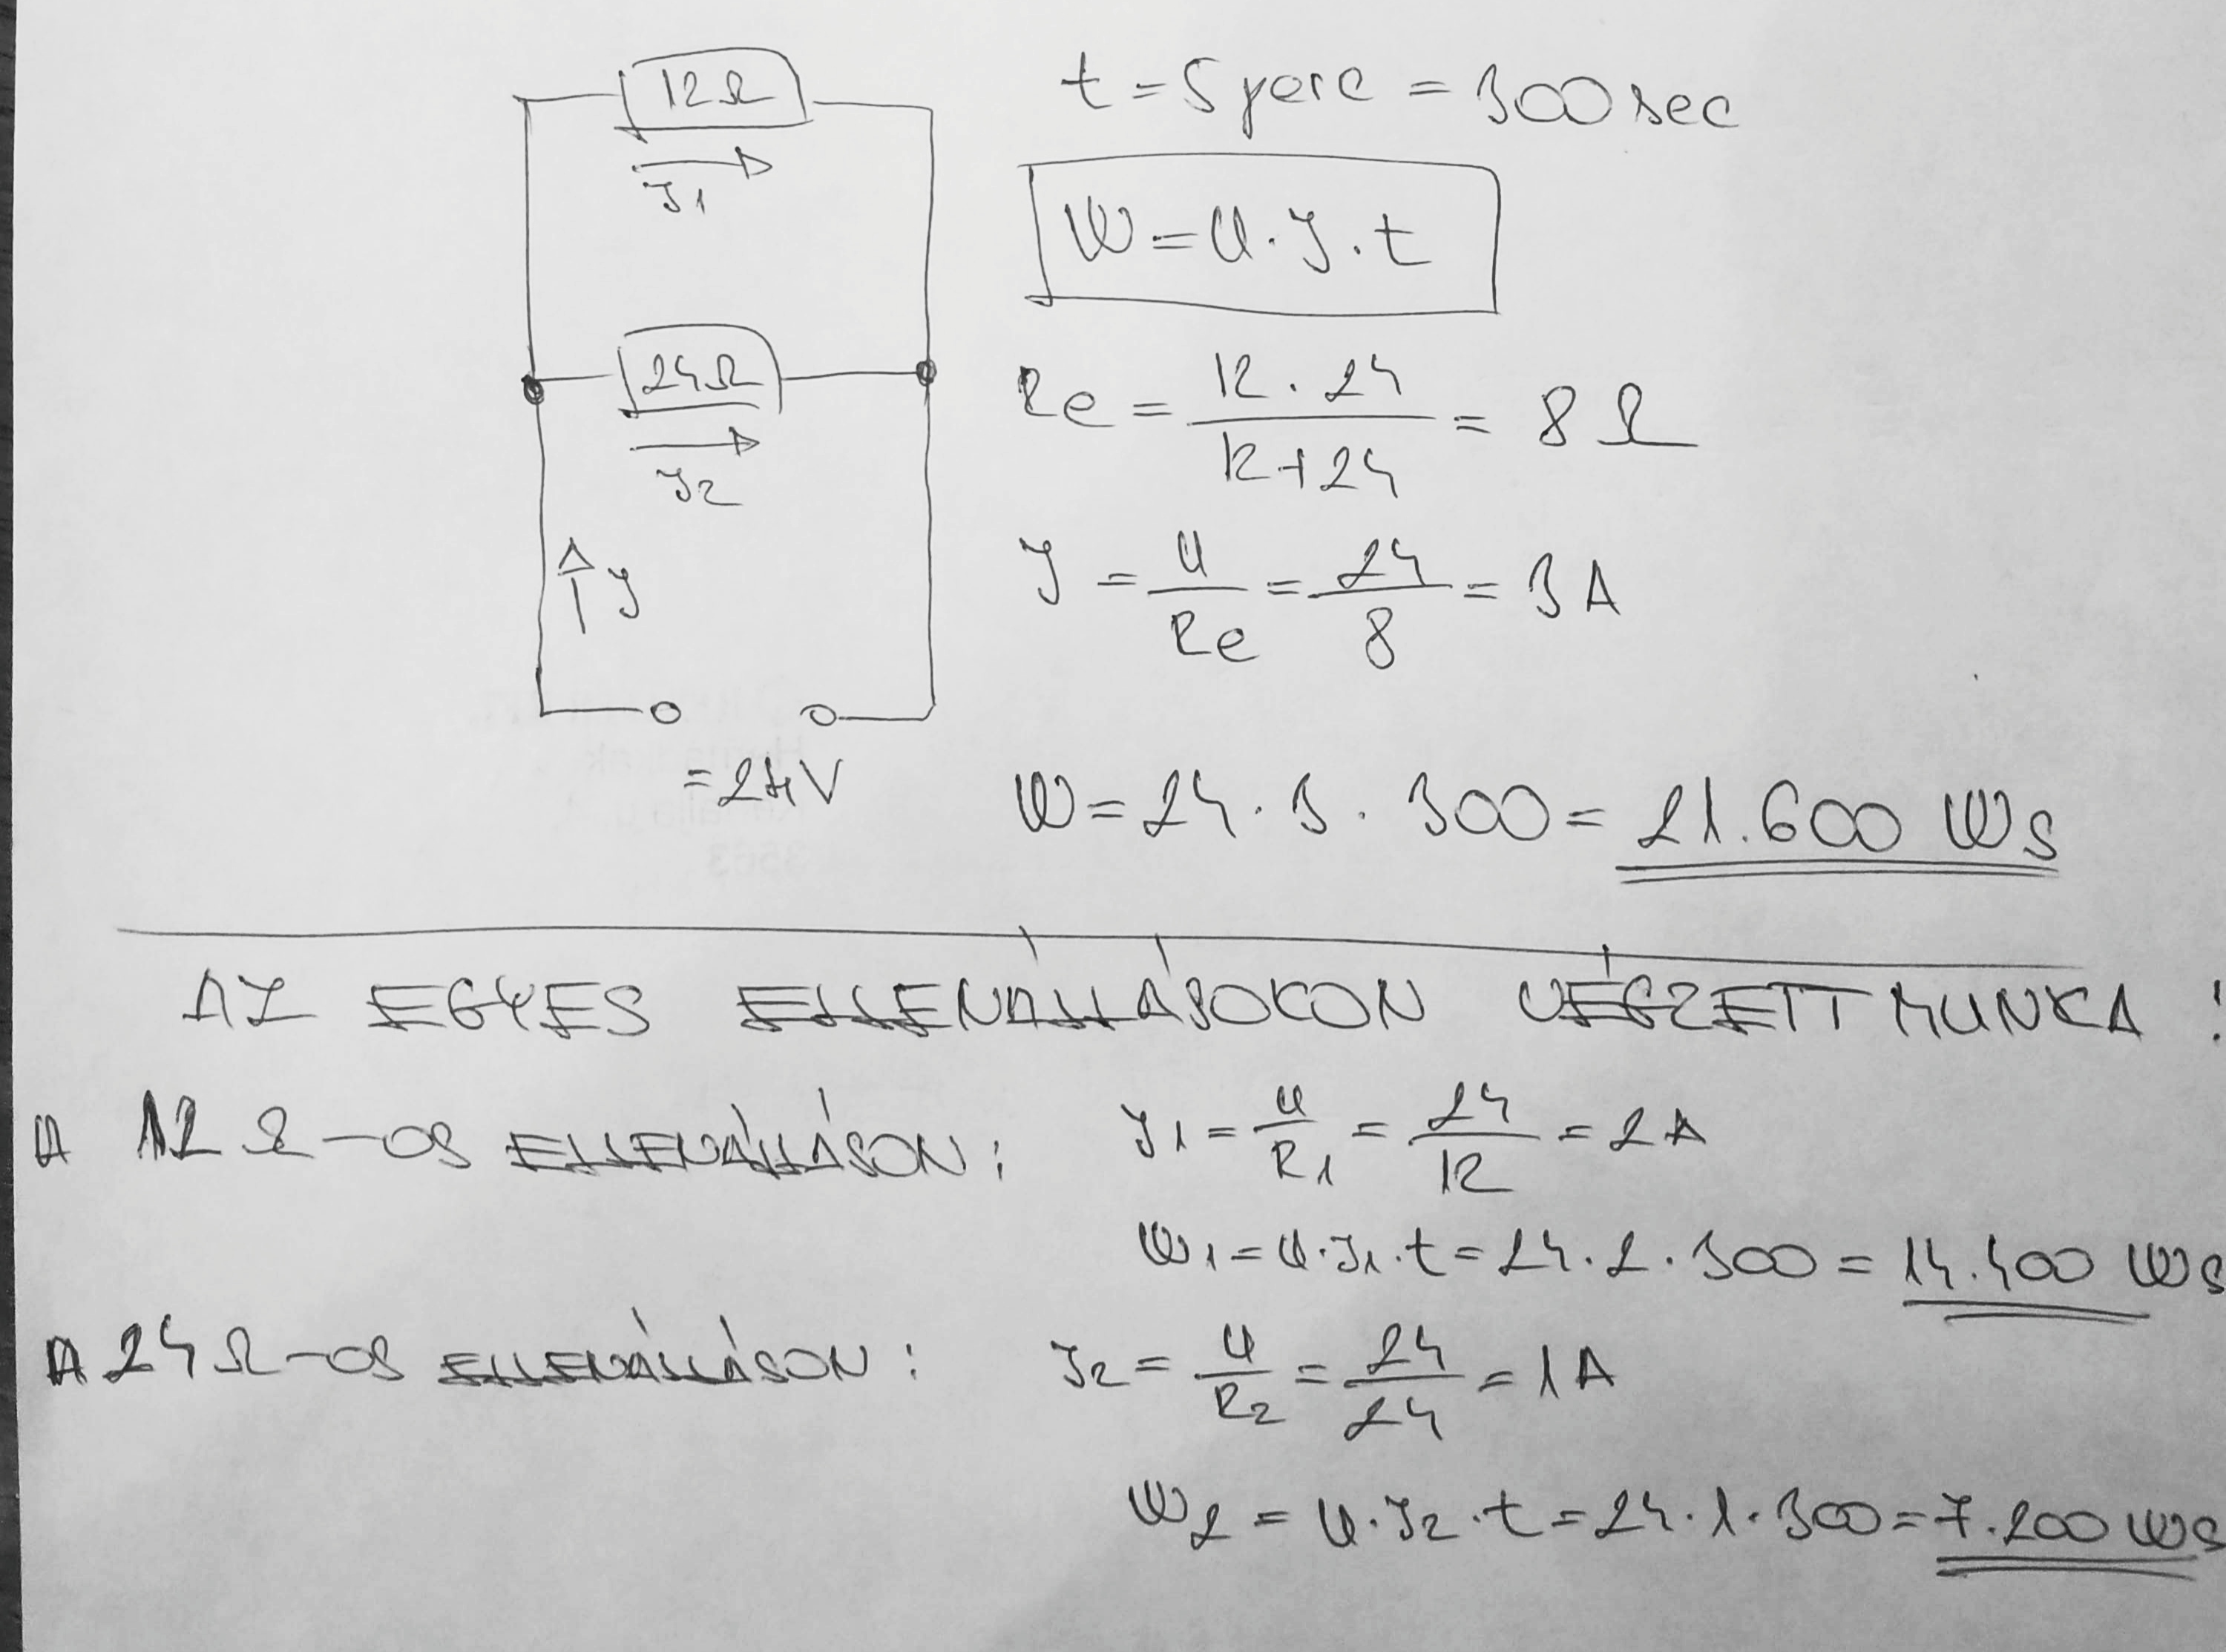 12Ω
I1
24Ω
I2
I
=24V
t = 5 perc = 300 sec
W = U · I · t
Re = 12 · 24 / 12 + 24 = 8 Ω
I = U / Re = 24 / 8 = 3 A
W = 24 · 3 · 300 = 21.600 Ws
AZ EGYES ELLENÁLLÁSOKON VÉGZETT MUNKA :
A 12 Ω-OS ELLENÁLLÁSON :
I1 = U / R1 = 24 / 12 = 2 A
W1 = U · I1 · t = 24 · 2 · 300 = 14.400 Ws
A 24 Ω-OS ELLENÁLLÁSON :
I2 = U / R2 = 24 / 24 = 1 A
W2 = U · I2 · t = 24 · 1 · 300 = 7.200 Ws